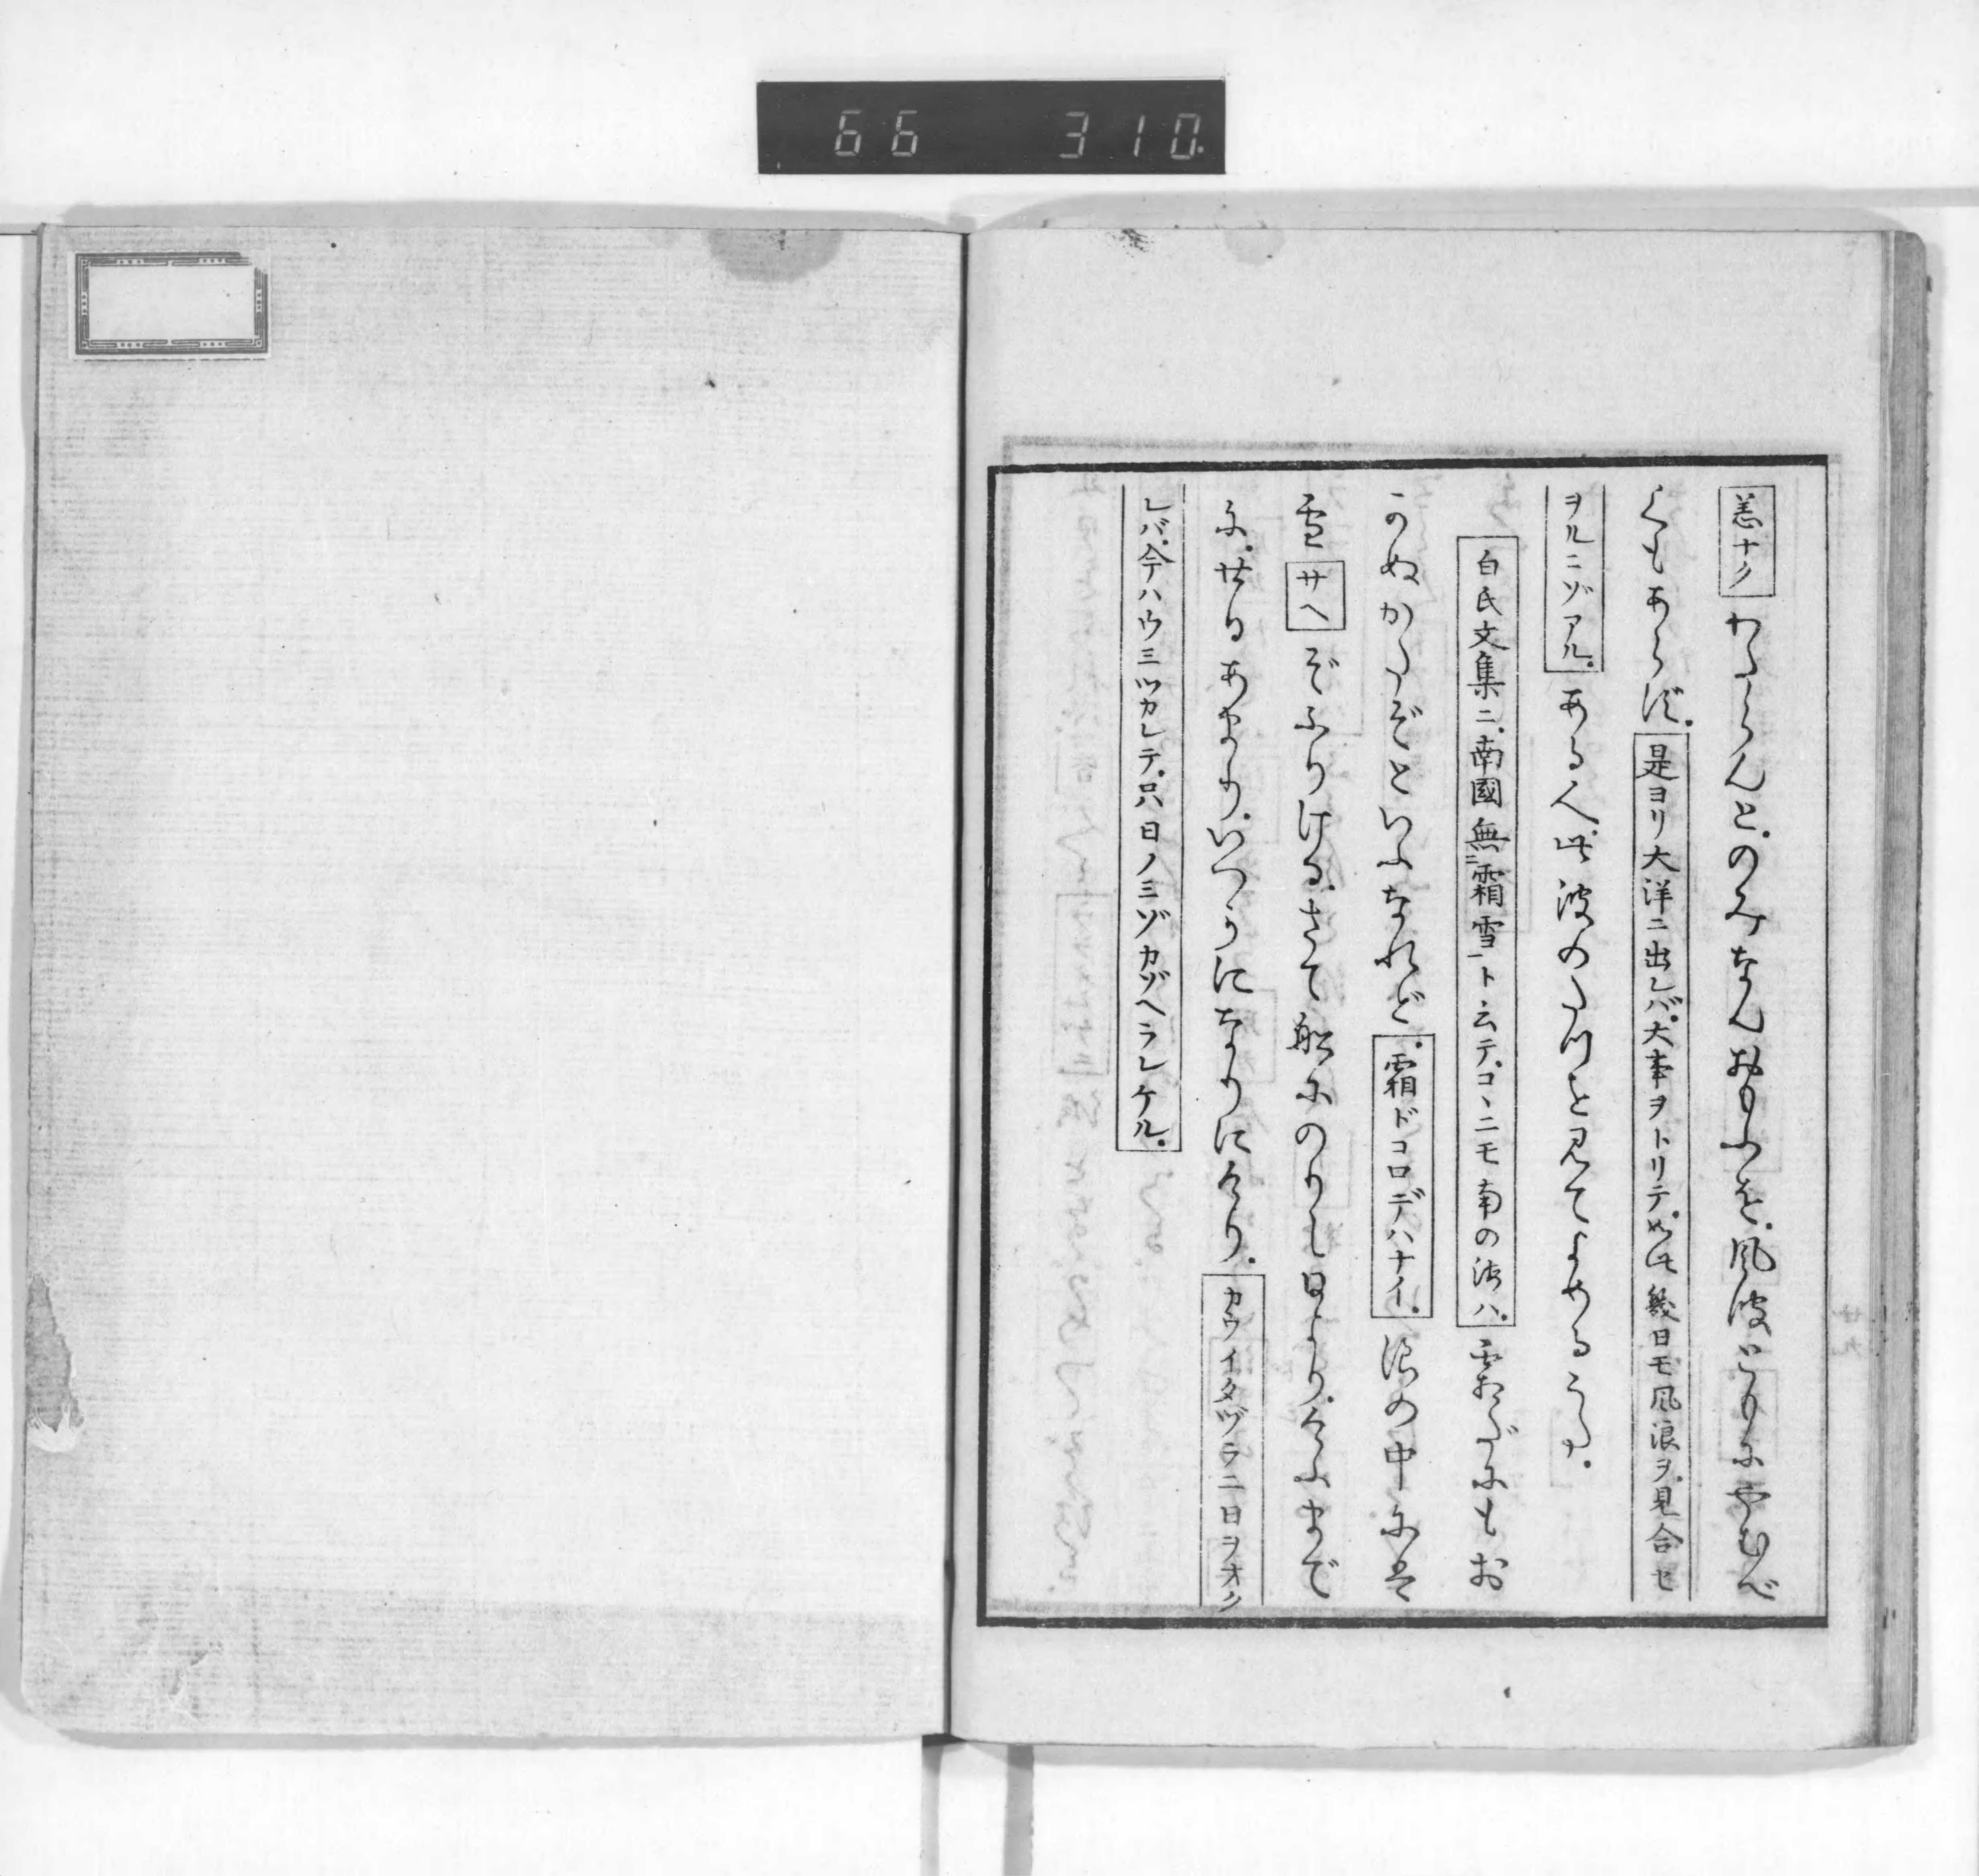 66 310
恙ナクわたらんと。のみなんおもふを。風波とみにやむべ
くもあらず。是ヨリ大洋ニ出レバ。大事ヲトリテ。如此幾日モ風浪ヲ。見合セ
ヲルニゾアル。ある人。此波のたつを見てよめるうた。
白氏文集ニ。南國無二霜雪一ト云テ。コヽニモ南の海ハ。霜だにもお
かぬかたぞといふなれど。霜ドコロデハナイ。浪の中には
雪サヘぞふりける。さて船にのりし日より。けふまで
に。廿日あまり。いつかになりにけり。カウイタヅラニ日ヲオク
レバ。今ハウミツカレテ。只日ノミゾカゾヘラレケル。
廿九